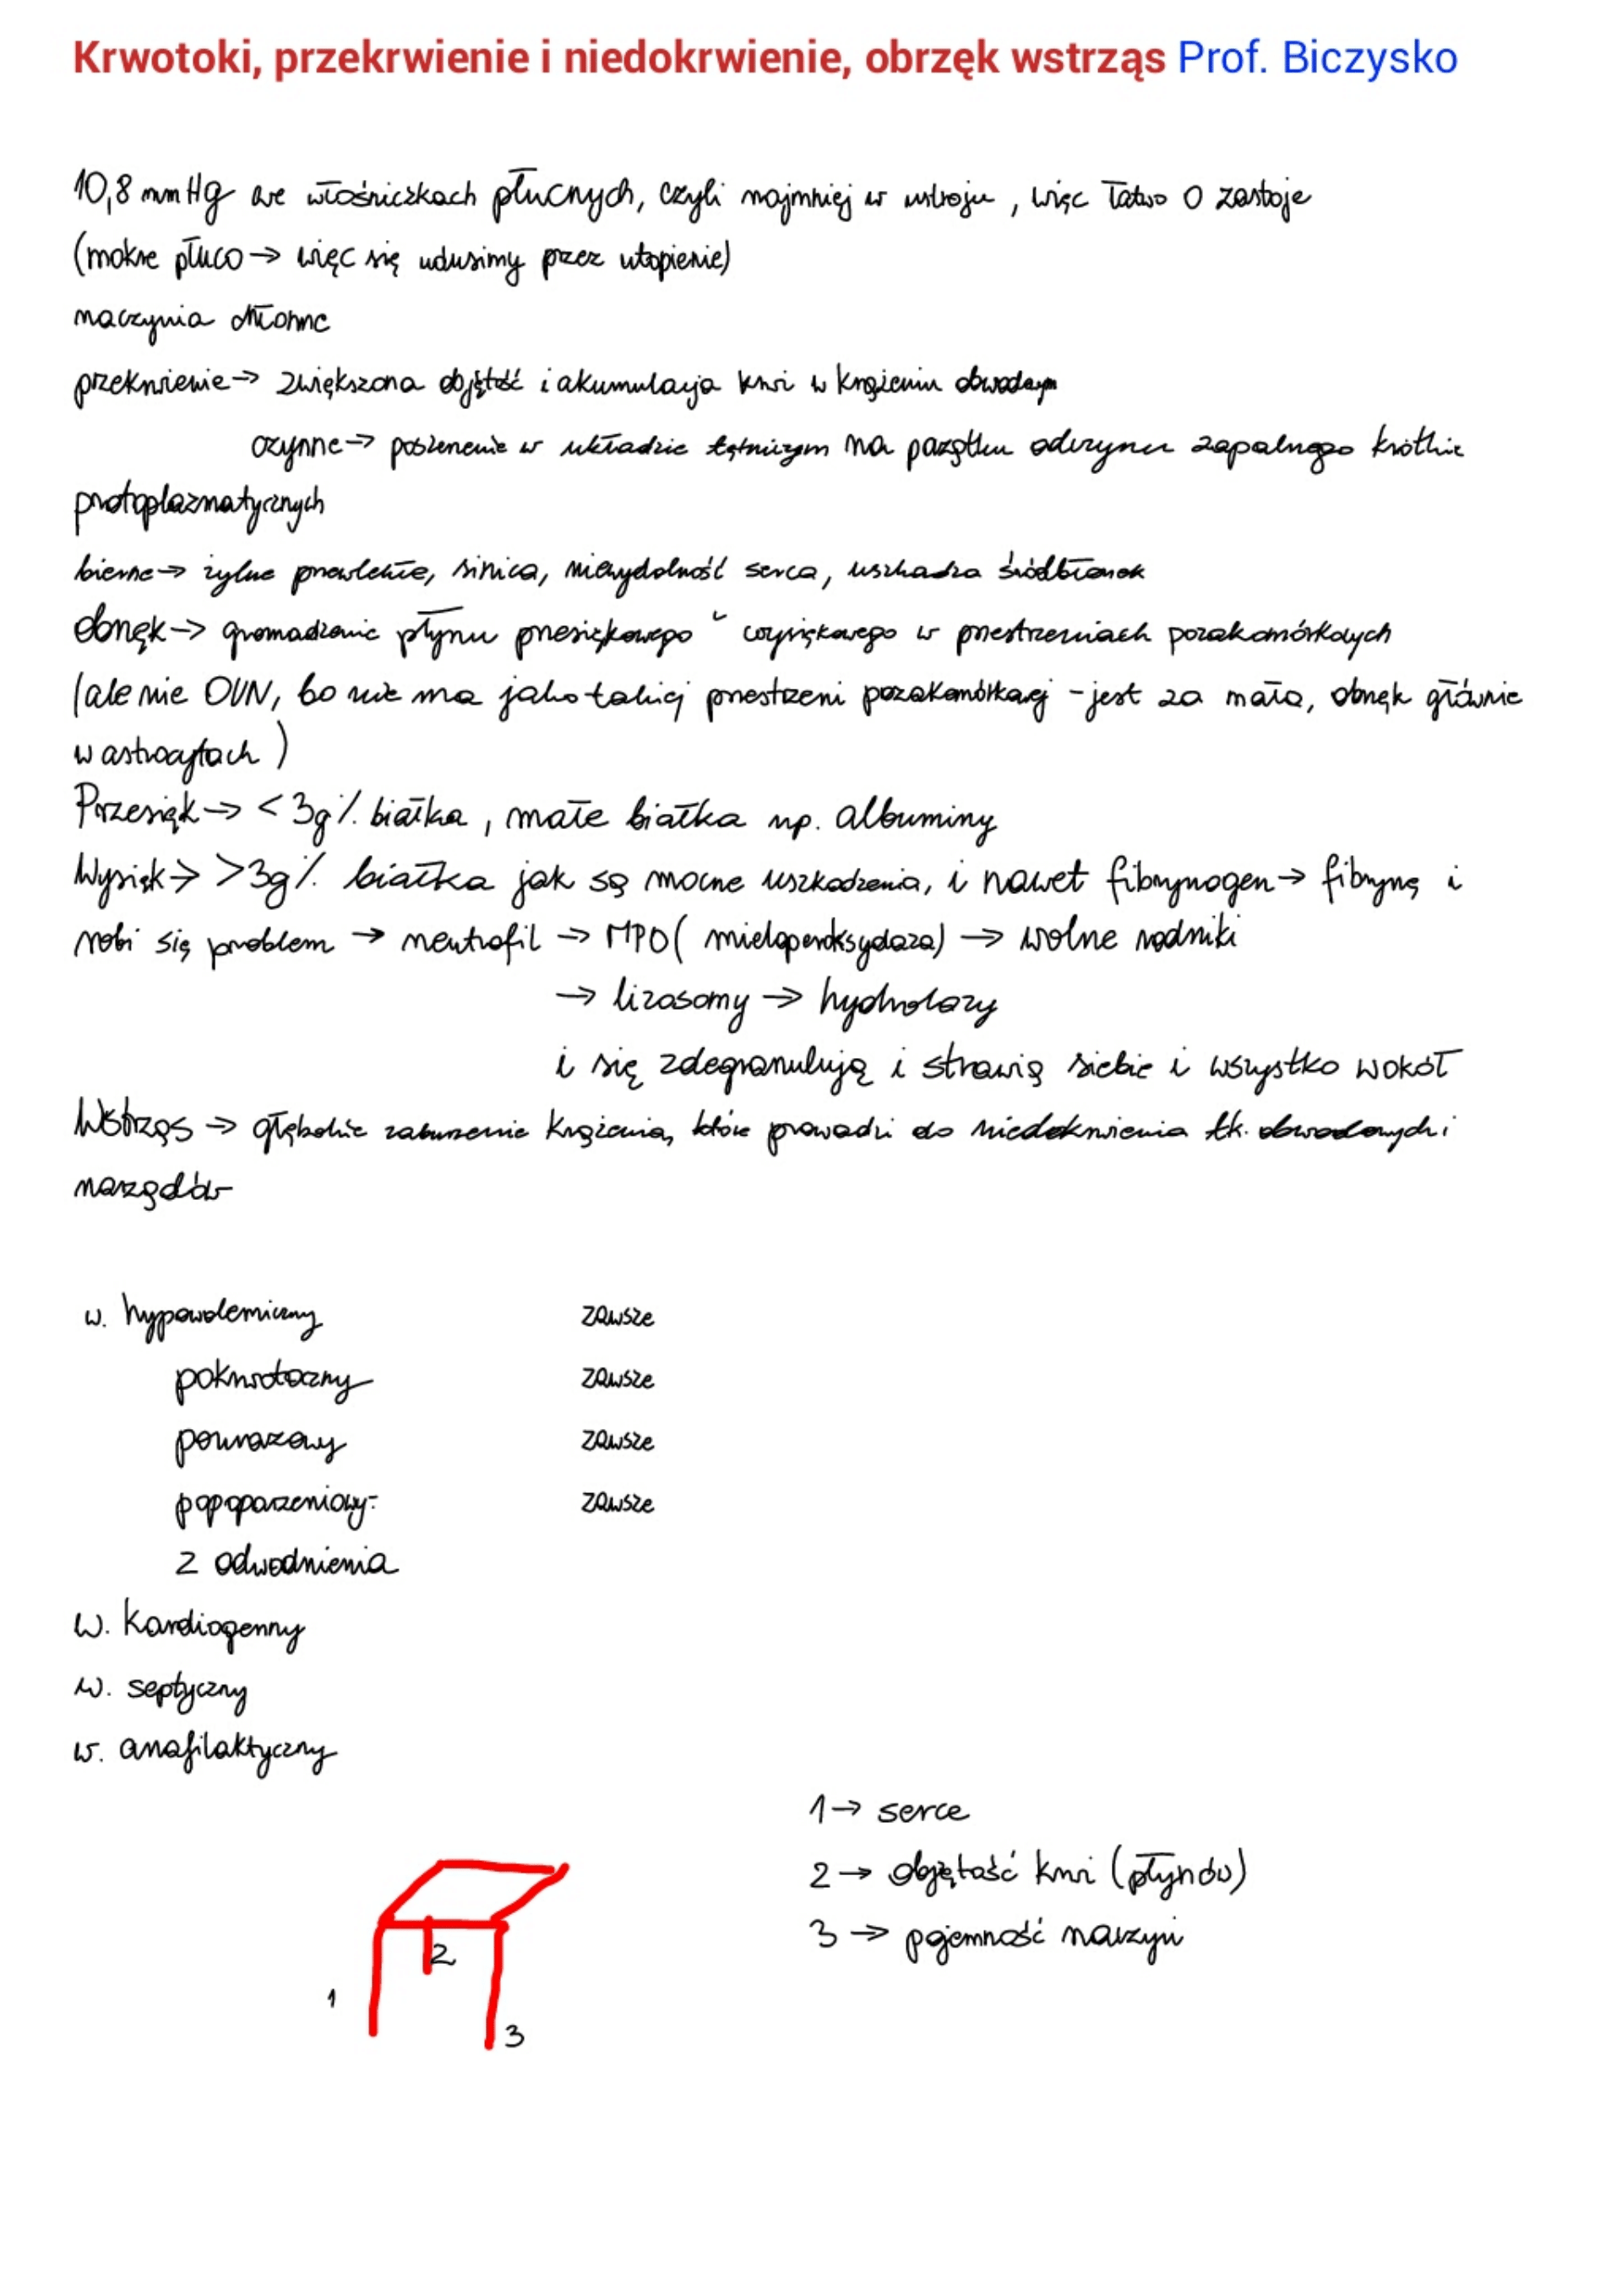 Krwotoki, przekrwienie i niedokrwienie, obrzęk wstrząs Prof. Biczysko
10,8 mmHg we włośniczkach płucnych, czyli najmniej w ustroju, więc łatwo o zastoje
(mokre płuco → więc się udusimy przez utopienie)
naczynia chłonne
przekrwienie → zwiększona objętość i akumulacja krwi w krążeniu obwodowym
czynne → poszerzenie w układzie tętniczym na początku odczynu zapalnego krótkie
protoplazmatycznych
bierne → żylne przewlekłe, sinica, niewydolność serca, uszkadza śródbłonek
obrzęk → gromadzenie płynu przesiękowego wysiękowego w przestrzeniach pozakomórkowych
(ale nie OUN, bo nie ma jako takiej przestrzeni pozakomórkowej - jest za mała, obrzęk głównie
w astrocytach)
Przesięk → < 3g% białka, małe białka np. albuminy
Wysięk → >3g% białka jak są mocne uszkodzenia, i nawet fibrynogen → fibrynę i
robi się problem → neutrofil → MPO (mieloperoksydaza) → wolne rodniki
→ lizosomy → hydrolazy
i się zdegranulują i strawią siebie i wszystko wokół
Wstrząs → głębokie zaburzenie krążenia, które prowadzi do niedokrwienia tk. obwodowych i
narządów
w. hypowolemiczny zawsze
pokrwotoczny zawsze
pourazowy zawsze
popoparzeniowy- zawsze
z odwodnienia
w. kardiogenny
w. septyczny
w. anafilaktyczny
1 → serce
2 → objętość krwi (płynów)
3 → pojemność naczyń
2
1
3